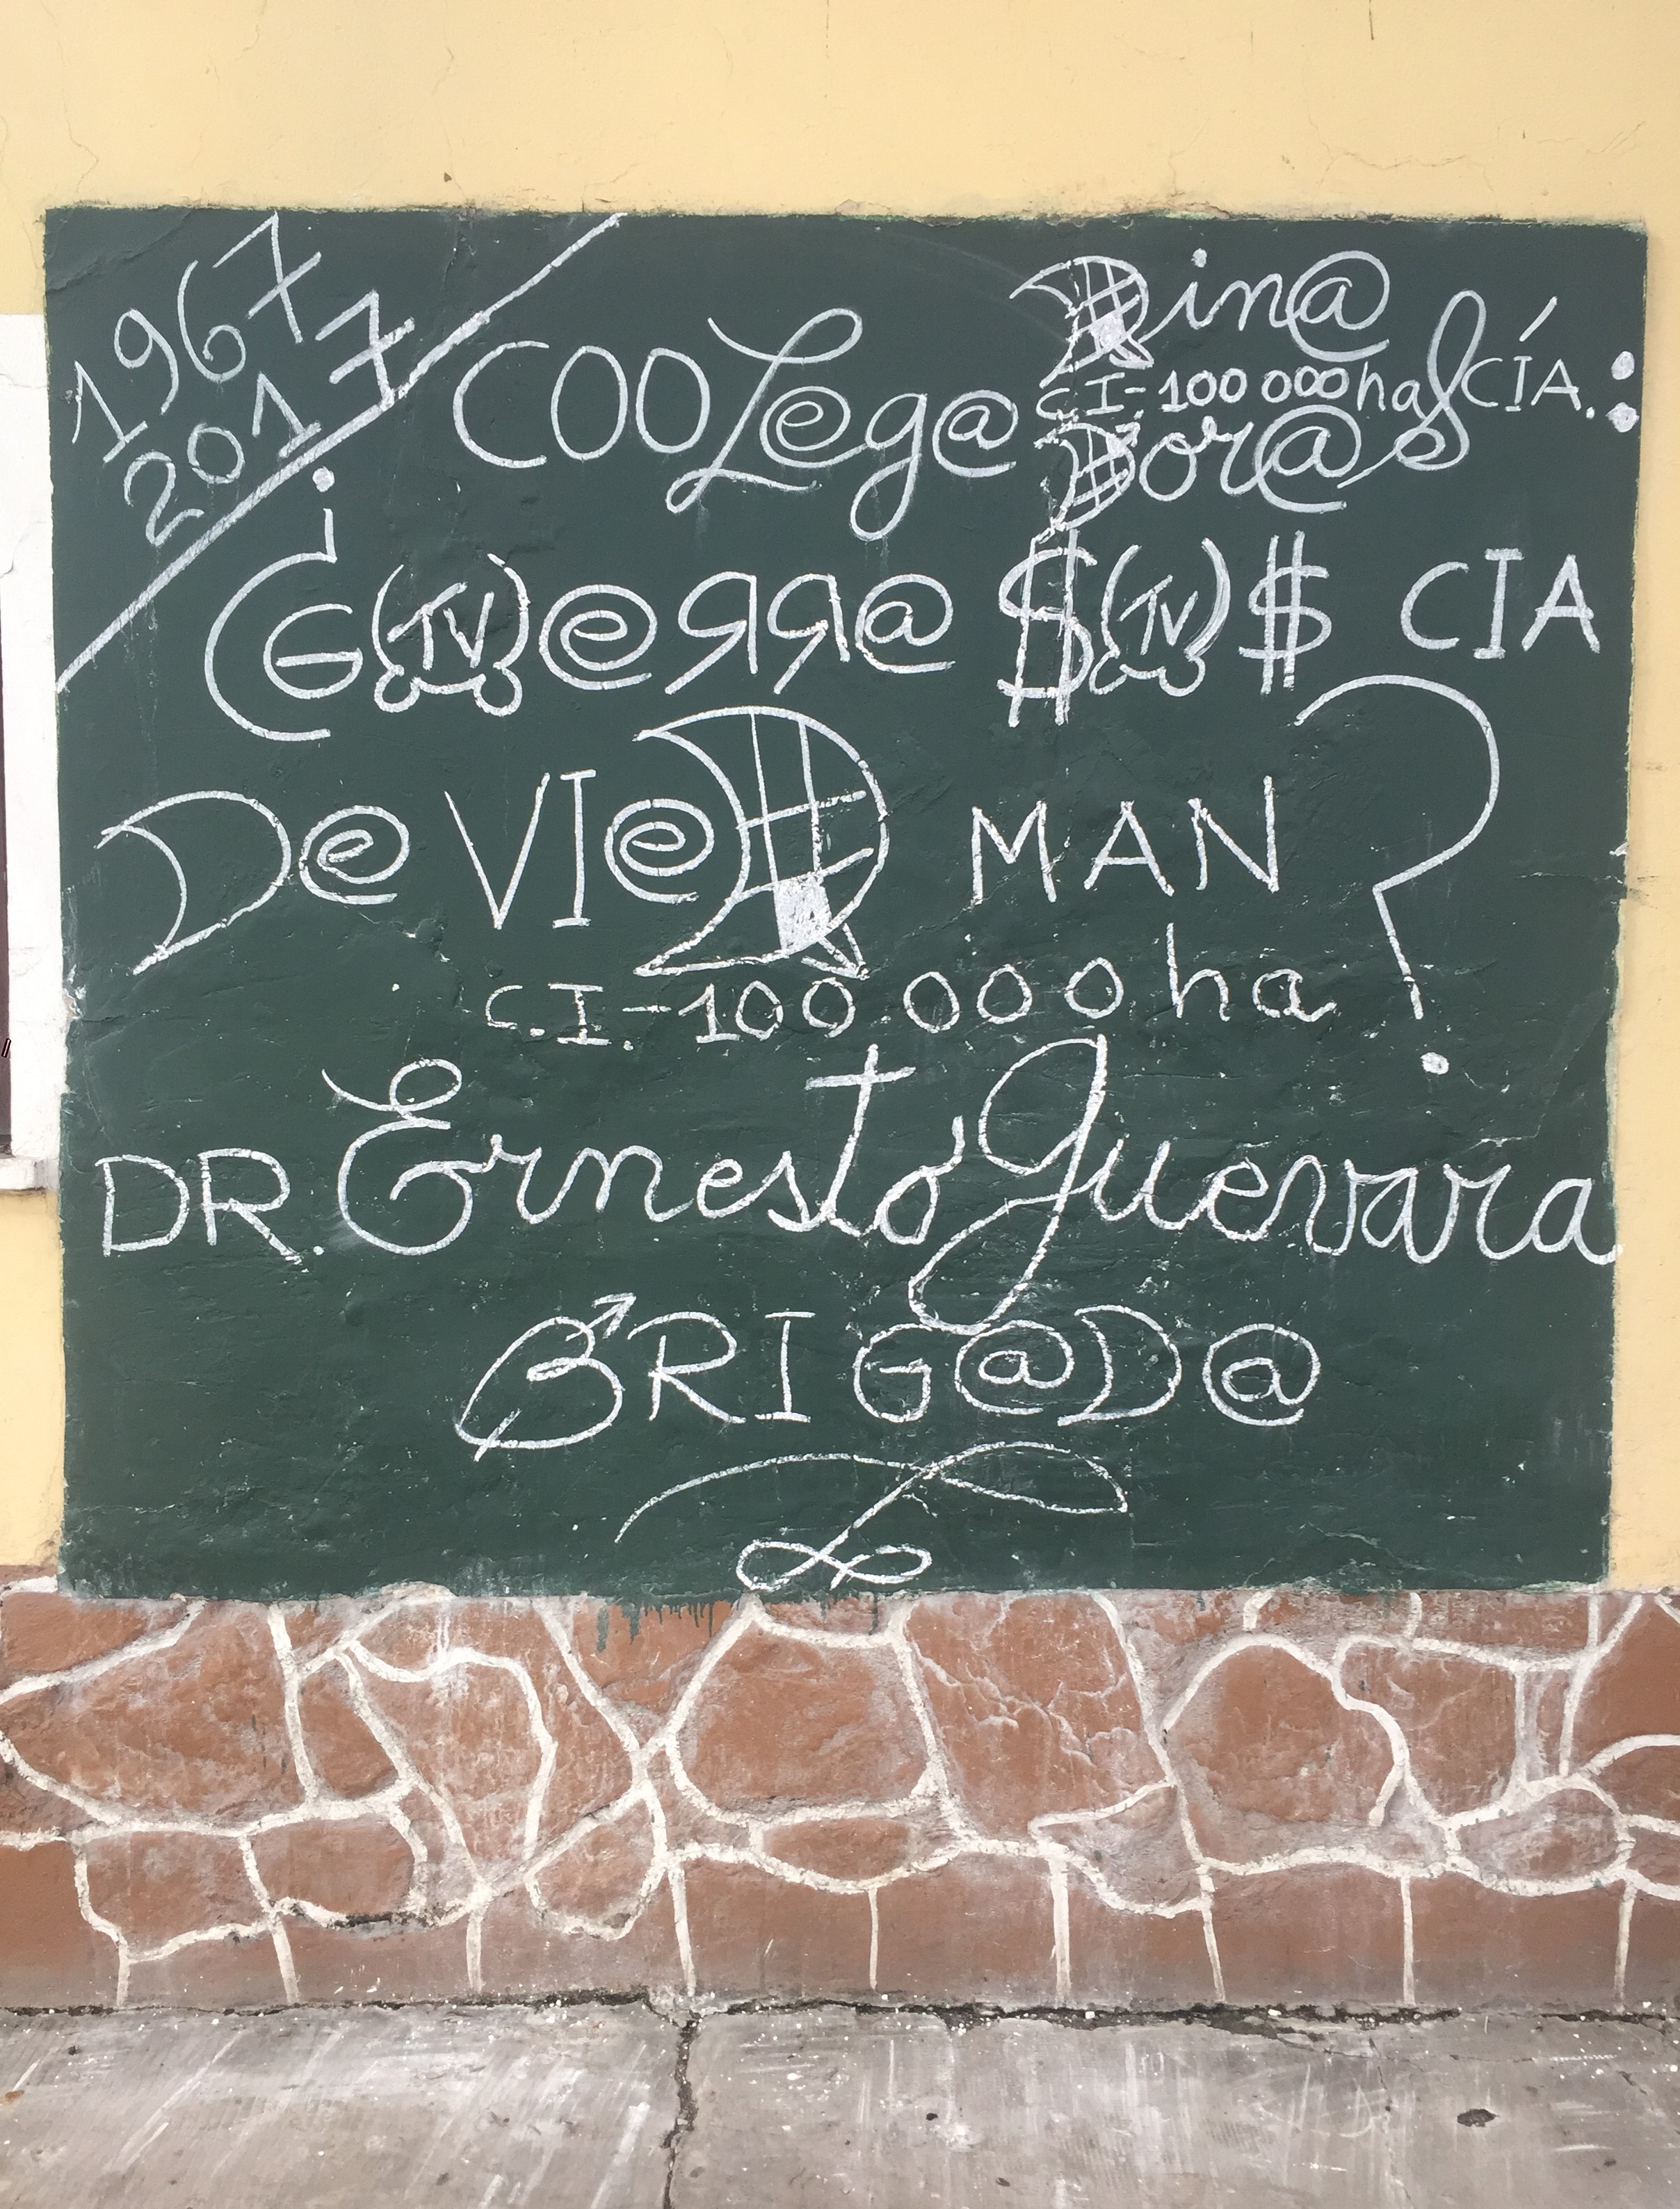 1967
2017
COOLeg@ Din@
C.I-100 000 ha & CÍA. :
Dor@s
¿G(TV)eЯЯ@ $(TV)$ CIA
De VIeD MAN?
C.I.-100.000 ha
DR. Ernesto Guevara
BRIG@D@